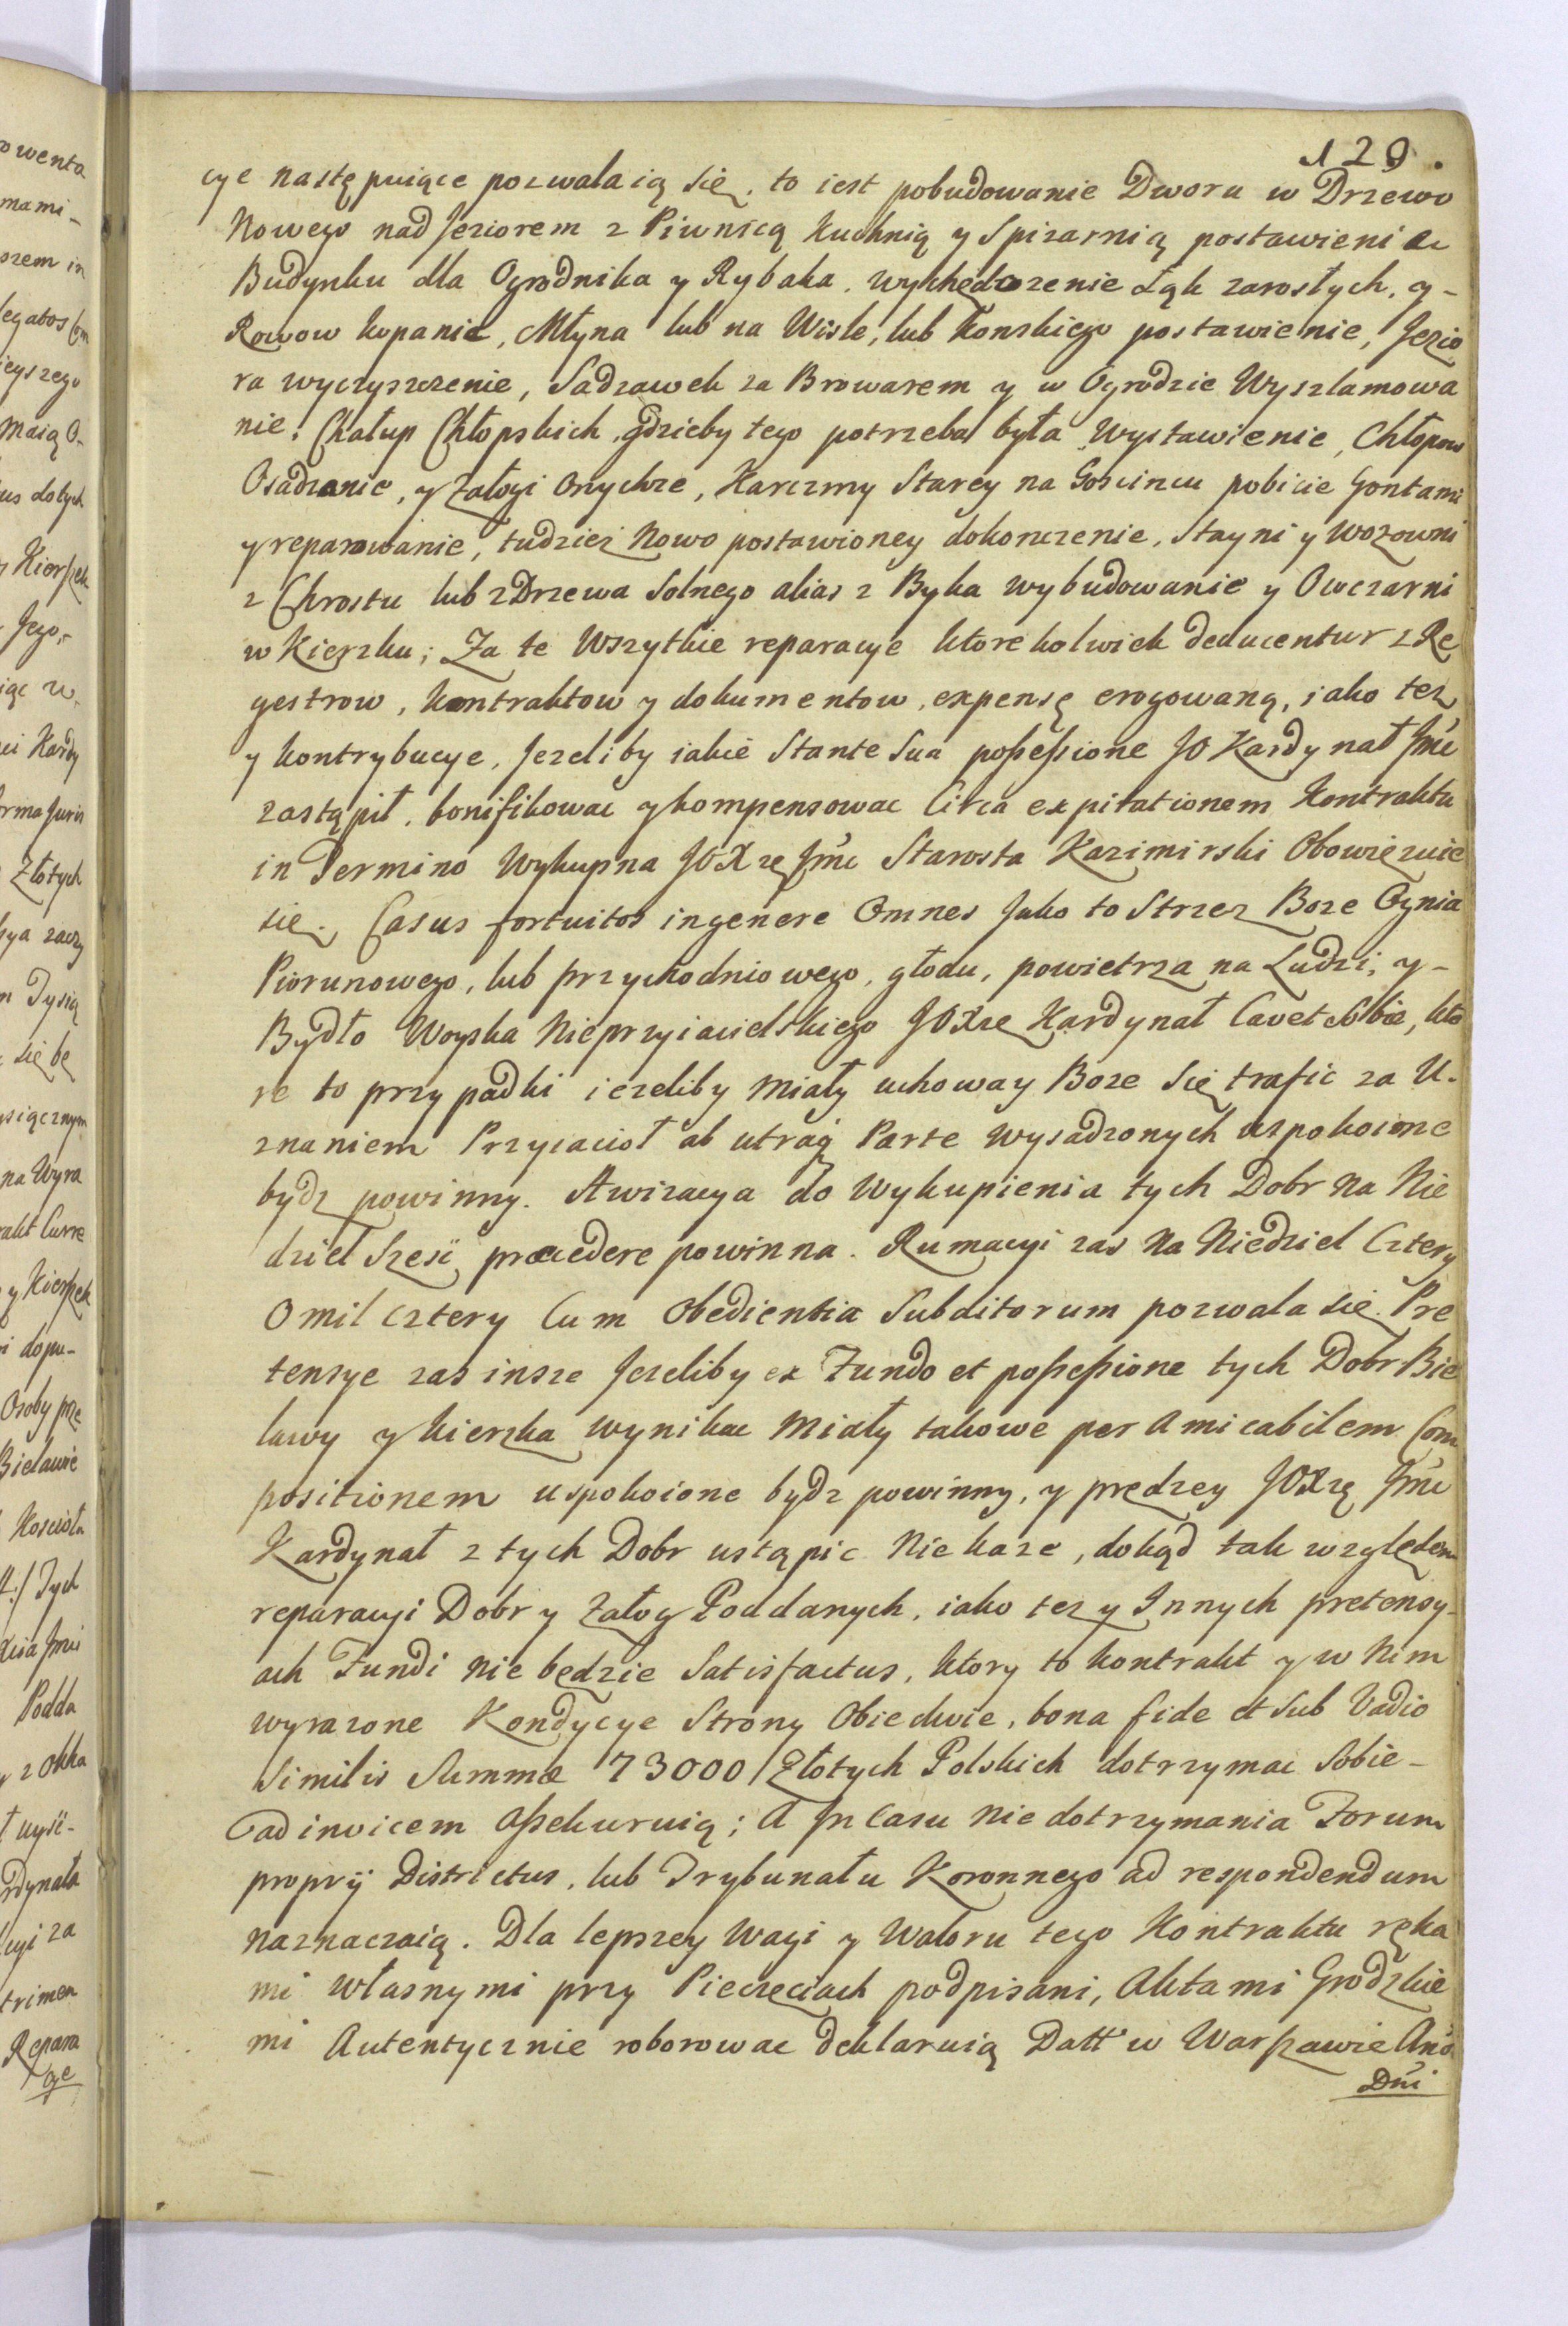 129.
cye następuiące pozwalaią się, to iest pobudowanie Dworu w Drzewo
Nowego nad Jeziorem z Piwnicą Kuchnią y Spizarnią postawienie
Budynku dla Ogrodnika y Rybaka, wychędozenie Łąk zarosłych, y-
Rowow kopanie, Młyna lub na Wisle, lub Konskiego postawienie, Jezio
ra wyczyszczenie, Sadzawek za Browarem y w Ogrodzie Wyszlamowa
nie, Chałup Chłopskich, gdzieby tego potrzeba była Wystawienie, Chłopow
Osadzanie, y Załogi Onychze, Karczmy Starey na Goscincu pobicie Gontami
y reparowanie, tudziez Nowo postawioney dokonczenie, Stayni y Wozowni
z Chrostu lub z Drzewa Solnego alias z Byka wybudowanie y Owczarni
w Kierzku; Za te Wszytkie reparacye ktorekolwiek deducentur z Re
gestrow, Kontraktow y dokumentow, expensę erogowaną, iako tez
y kontrybucye, Jezeliby iakie Stante Sua poſseſsione JO Kardynał Jmć
zastąpił, bonifikowac y kompensowac Circa expirationem Kontraktu
in Termino Wykupna JOXzę Jmć Starosta Kazimirski Obowięzuie
się. Casus fortuitos in genere Omnes Jako to Strzez Boze Ognia
Piorunowego, lub przychodniowego, głodu, powietrza na Ludzi, y-
Bydło Woyska Nieprzyiacielskiego JOXze Kardynał Cavet Sobie, kto
re to przypadki iezeliby miały uchoway Boze Się trafic za U-
znaniem Przyiacioł ab utraq Parte wysadzonych uspokoione
bydz powinny. Awizacya do Wykupienia tych Dobr na Nie
dziel Szesć, præcedere powinna. Rumacyi zas na Niedziel Cztery
O mil cztery Cum Obedientia Subditorum pozwala się. Pre
tensye zas insze Jezeliby ex Fundo et poſseſsione tych Dobr Bie
lawy y Kierzka wynikac miały takowe per Amicabilem Com
positionem uspokoione bydz powinny, y prędzey JOXzę Jmć
Kardynał z tych Dobr ustąpic Nie kaze, dokąd tak względem
reparacyi Dobr y Załog Poddanych, iako tez y Innych pretensy-
ach Fundi nie będzie Satisfactus, ktory to kontrakt y w Nim
wyrazone Kondycye Strony Obiedwie, bona fide et Sub Vadio
Similis Summæ 73000 Złotych Polskich dotrzymac Sobie-
ad invicem aſsekuruią; A In Casu Nie dotrzymania Forum
proprij Districtus, lub Trybunału Koronnego ad respondendum
naznaczaią. Dla lepszey Wagi y Waloru tego Kontraktu ręka
mi własnymi przy Pieczęciach podpisani, Aktami Grodzkie
mi Autentycznie roborowac deklaruią Datt w Warſzawie Anõ
Dńi
owenta
mami-
szem in
legatos Com
ieyszego
maią O-
us dotych
Kierſzek
Jego,-
iąc w
ci Kardy
rma Juris
Złotych
kya zaczy
Tysią
się bę
siącznym
na Wyra
akt Curre
y Kierſzek
i dopu-
Osoby prze
Bielawie
Koscioła
Tych
Xcia Jmći
Podda
z okka
uyść-
rdynała
cyi za
trimen
Repara
cye